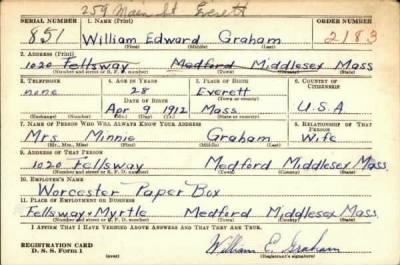 259 Main St Everett
SERIAL NUMBER 1. NAME (Print) ORDER NUMBER
851 William Edward Graham 2183
(First) (Middle) (Last)
2. ADDRESS (Print)
1020 Fellsway Medford Middlesex Mass
(Number and street or R. F. D. number) (Town) (County) (State)
3. TELEPHONE 4. AGE IN YEARS 5. PLACE OF BIRTH 6. COUNTRY OF CITIZENSHIP
none 28 Everett
(Town or county)
DATE OF BIRTH
Apr 9 1912 Mass U.S.A
(Exchange) (Number) (Mo.) (Day) (Yr.) (State or country)
7. NAME OF PERSON WHO WILL ALWAYS KNOW YOUR ADDRESS 8. RELATIONSHIP OF THAT PERSON
Mrs. Minnie Graham Wife
(Mr., Mrs., Miss) (First) (Middle) (Last)
9. ADDRESS OF THAT PERSON
1020 Fellsway Medford Middlesex Mass
(Number and street or R. F. D. number) (Town) (County) (State)
10. EMPLOYER'S NAME
Worcester Paper Box
11. PLACE OF EMPLOYMENT OR BUSINESS
Fellsway + Myrtle Medford Middlesex Mass
(Number and street or R. F. D. number) (Town) (County) (State)
I AFFIRM THAT I HAVE VERIFIED ABOVE ANSWERS AND THAT THEY ARE TRUE.
REGISTRATION CARD
D. S. S. Form 1 (over) William E. Graham
(Registrant's signature)